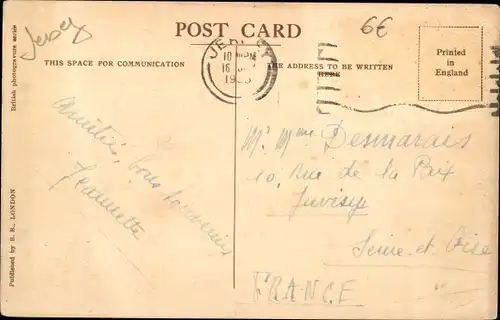 Jersey
POST CARD
6€
British photogravure series
THIS SPACE FOR COMMUNICATION
THE ADDRESS TO BE WRITTEN
HERE
Printed
in
England
JER
10 PM
16
19
Amitié, bons souvenirs
Jeannette
Mr Mme Desmarais
10, Rue de la Paix
Juvisy
Seine et Oise
FRANCE
Published by S. R., LONDON